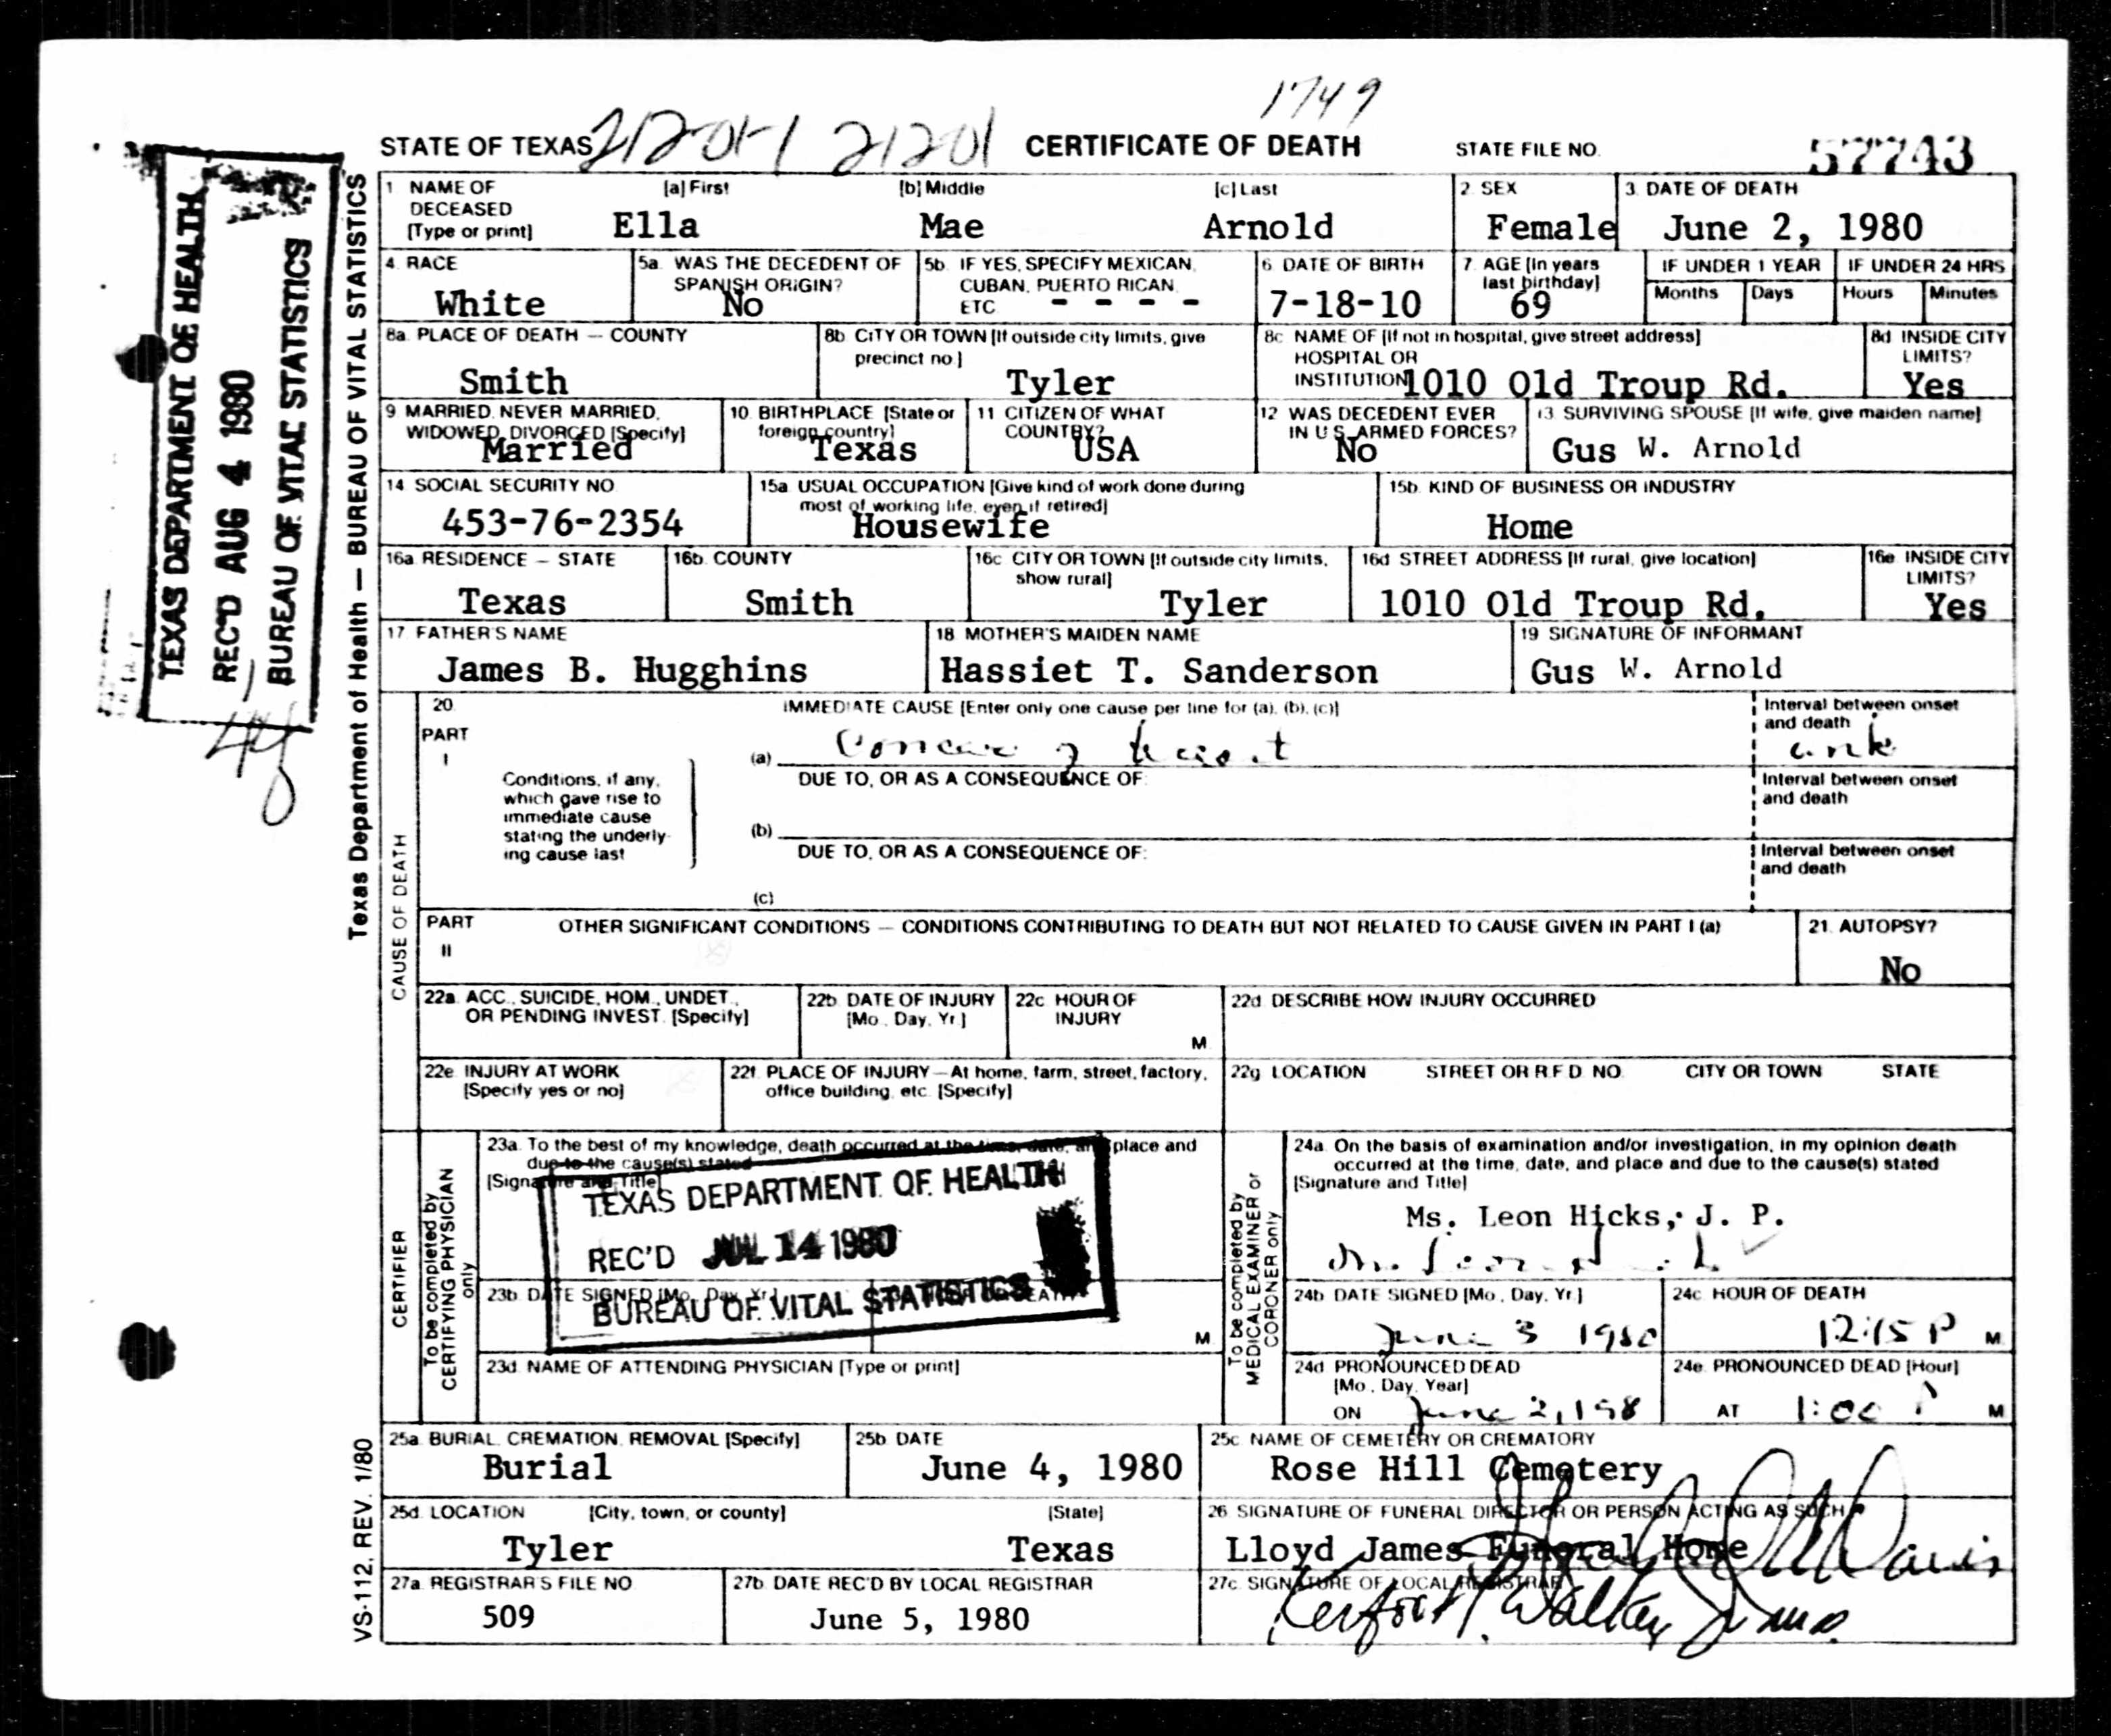 1749
STATE OF TEXAS 21201-1 21201 CERTIFICATE OF DEATH STATE FILE NO. 57743
1 NAME OF DECEASED [Type or print] [a] First Ella [b] Middle Mae [c] Last Arnold 2. SEX Female 3. DATE OF DEATH June 2, 1980
4. RACE White 5a. WAS THE DECEDENT OF SPANISH ORIGIN? No 5b. IF YES, SPECIFY MEXICAN, CUBAN, PUERTO RICAN, ETC. - - - - 6. DATE OF BIRTH 7-18-10 7. AGE [In years last birthday] 69 IF UNDER 1 YEAR Months Days IF UNDER 24 HRS Hours Minutes
8a. PLACE OF DEATH — COUNTY Smith 8b. CITY OR TOWN [If outside city limits, give precinct no.] Tyler 8c. NAME OF [If not in hospital, give street address] HOSPITAL OR INSTITUTION 1010 Old Troup Rd. 8d. INSIDE CITY LIMITS? Yes
9 MARRIED, NEVER MARRIED, WIDOWED, DIVORCED [Specify] Married 10. BIRTHPLACE [State or foreign country] Texas 11 CITIZEN OF WHAT COUNTRY? USA 12 WAS DECEDENT EVER IN U.S. ARMED FORCES? No 13 SURVIVING SPOUSE [If wife, give maiden name] Gus W. Arnold
14 SOCIAL SECURITY NO. 453-76-2354 15a. USUAL OCCUPATION [Give kind of work done during most of working life, even if retired] Housewife 15b. KIND OF BUSINESS OR INDUSTRY Home
16a. RESIDENCE — STATE Texas 16b. COUNTY Smith 16c. CITY OR TOWN [If outside city limits, show rural] Tyler 16d. STREET ADDRESS [If rural, give location] 1010 Old Troup Rd. 16e. INSIDE CITY LIMITS? Yes
17 FATHER'S NAME James B. Hugghins 18. MOTHER'S MAIDEN NAME Hassiet T. Sanderson 19 SIGNATURE OF INFORMANT Gus W. Arnold
20. IMMEDIATE CAUSE [Enter only one cause per line for (a), (b), (c)] Interval between onset and death
PART I (a) of
Conditions, if any, which gave rise to immediate cause stating the underlying cause last
DUE TO, OR AS A CONSEQUENCE OF: Interval between onset and death
(b)
DUE TO, OR AS A CONSEQUENCE OF: Interval between onset and death
(c)
PART II OTHER SIGNIFICANT CONDITIONS — CONDITIONS CONTRIBUTING TO DEATH BUT NOT RELATED TO CAUSE GIVEN IN PART I (a) 21. AUTOPSY? No
22a. ACC., SUICIDE, HOM., UNDET., OR PENDING INVEST. [Specify] 22b. DATE OF INJURY [Mo., Day, Yr.] 22c. HOUR OF INJURY M 22d. DESCRIBE HOW INJURY OCCURRED
22e. INJURY AT WORK [Specify yes or no] 22f. PLACE OF INJURY—At home, farm, street, factory, office building, etc. [Specify] 22g. LOCATION STREET OR R.F.D. NO. CITY OR TOWN STATE
23a. To the best of my knowledge, death occurred at the time, date, and place and due to the cause(s) stated
[Signature and Title]
TEXAS DEPARTMENT OF HEALTH
REC'D JUL 14 1980
BUREAU OF VITAL STATISTICS
23b. DATE SIGNED [Mo., Day, Yr.] M
23d. NAME OF ATTENDING PHYSICIAN [Type or print]
24a. On the basis of examination and/or investigation, in my opinion death occurred at the time, date, and place and due to the cause(s) stated
[Signature and Title]
Ms. Leon Hicks, J. P.
24b. DATE SIGNED [Mo., Day, Yr.] June 3 1980 24c. HOUR OF DEATH 12:15 P M
24d. PRONOUNCED DEAD [Mo., Day, Year] ON June 2, 198 24e. PRONOUNCED DEAD [Hour] AT 1:00 P M
25a. BURIAL, CREMATION, REMOVAL [Specify] Burial 25b. DATE June 4, 1980 25c. NAME OF CEMETERY OR CREMATORY Rose Hill Cemetery
25d. LOCATION [City, town, or county] Tyler [State] Texas 26 SIGNATURE OF FUNERAL DIRECTOR OR PERSON ACTING AS SUCH Lloyd James Funeral Home Davis
27a. REGISTRAR'S FILE NO. 509 27b. DATE REC'D BY LOCAL REGISTRAR June 5, 1980 27c. SIGNATURE OF LOCAL REGISTRAR Walker
CAUSE OF DEATH
CERTIFIER
To be completed by CERTIFYING PHYSICIAN only
To be completed by MEDICAL EXAMINER or CORONER only
Texas Department of Health — BUREAU OF VITAL STATISTICS
VS-112, REV. 1/80
TEXAS DEPARTMENT OF HEALTH
REC'D AUG 4 1980
BUREAU OF VITAL STATISTICS